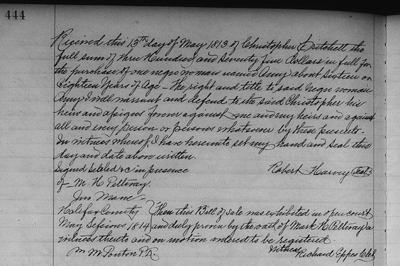 444
Received this 13th day of May 1813 of Christopher Pritchett the
full sum of three Hundred and Seventy five Dollars in full for
the purchase of one negro woman named Amy about Sixteen or
Eighteen Years of Age - The right and title to said negro woman
Amy I will warrant and defend to the said Christopher his
heirs and assigns forever against me and my heirs and against
all and every person or persons whatsoever by these presents.
In witness whereof I have hereunto set my hand and seal this
day and date above written.
Signed sealed &c in presence Robert Harvey (Seal)
of M. H. Pettway.
Jno
Halifax County } Then this Bill of sale was exhibited in open court
May Sessions 1814 and duly proven by the oath of Mark H. Pettway a
witness thereto and on motion ordered to be registered.
Witness
Richard Eppes Clk